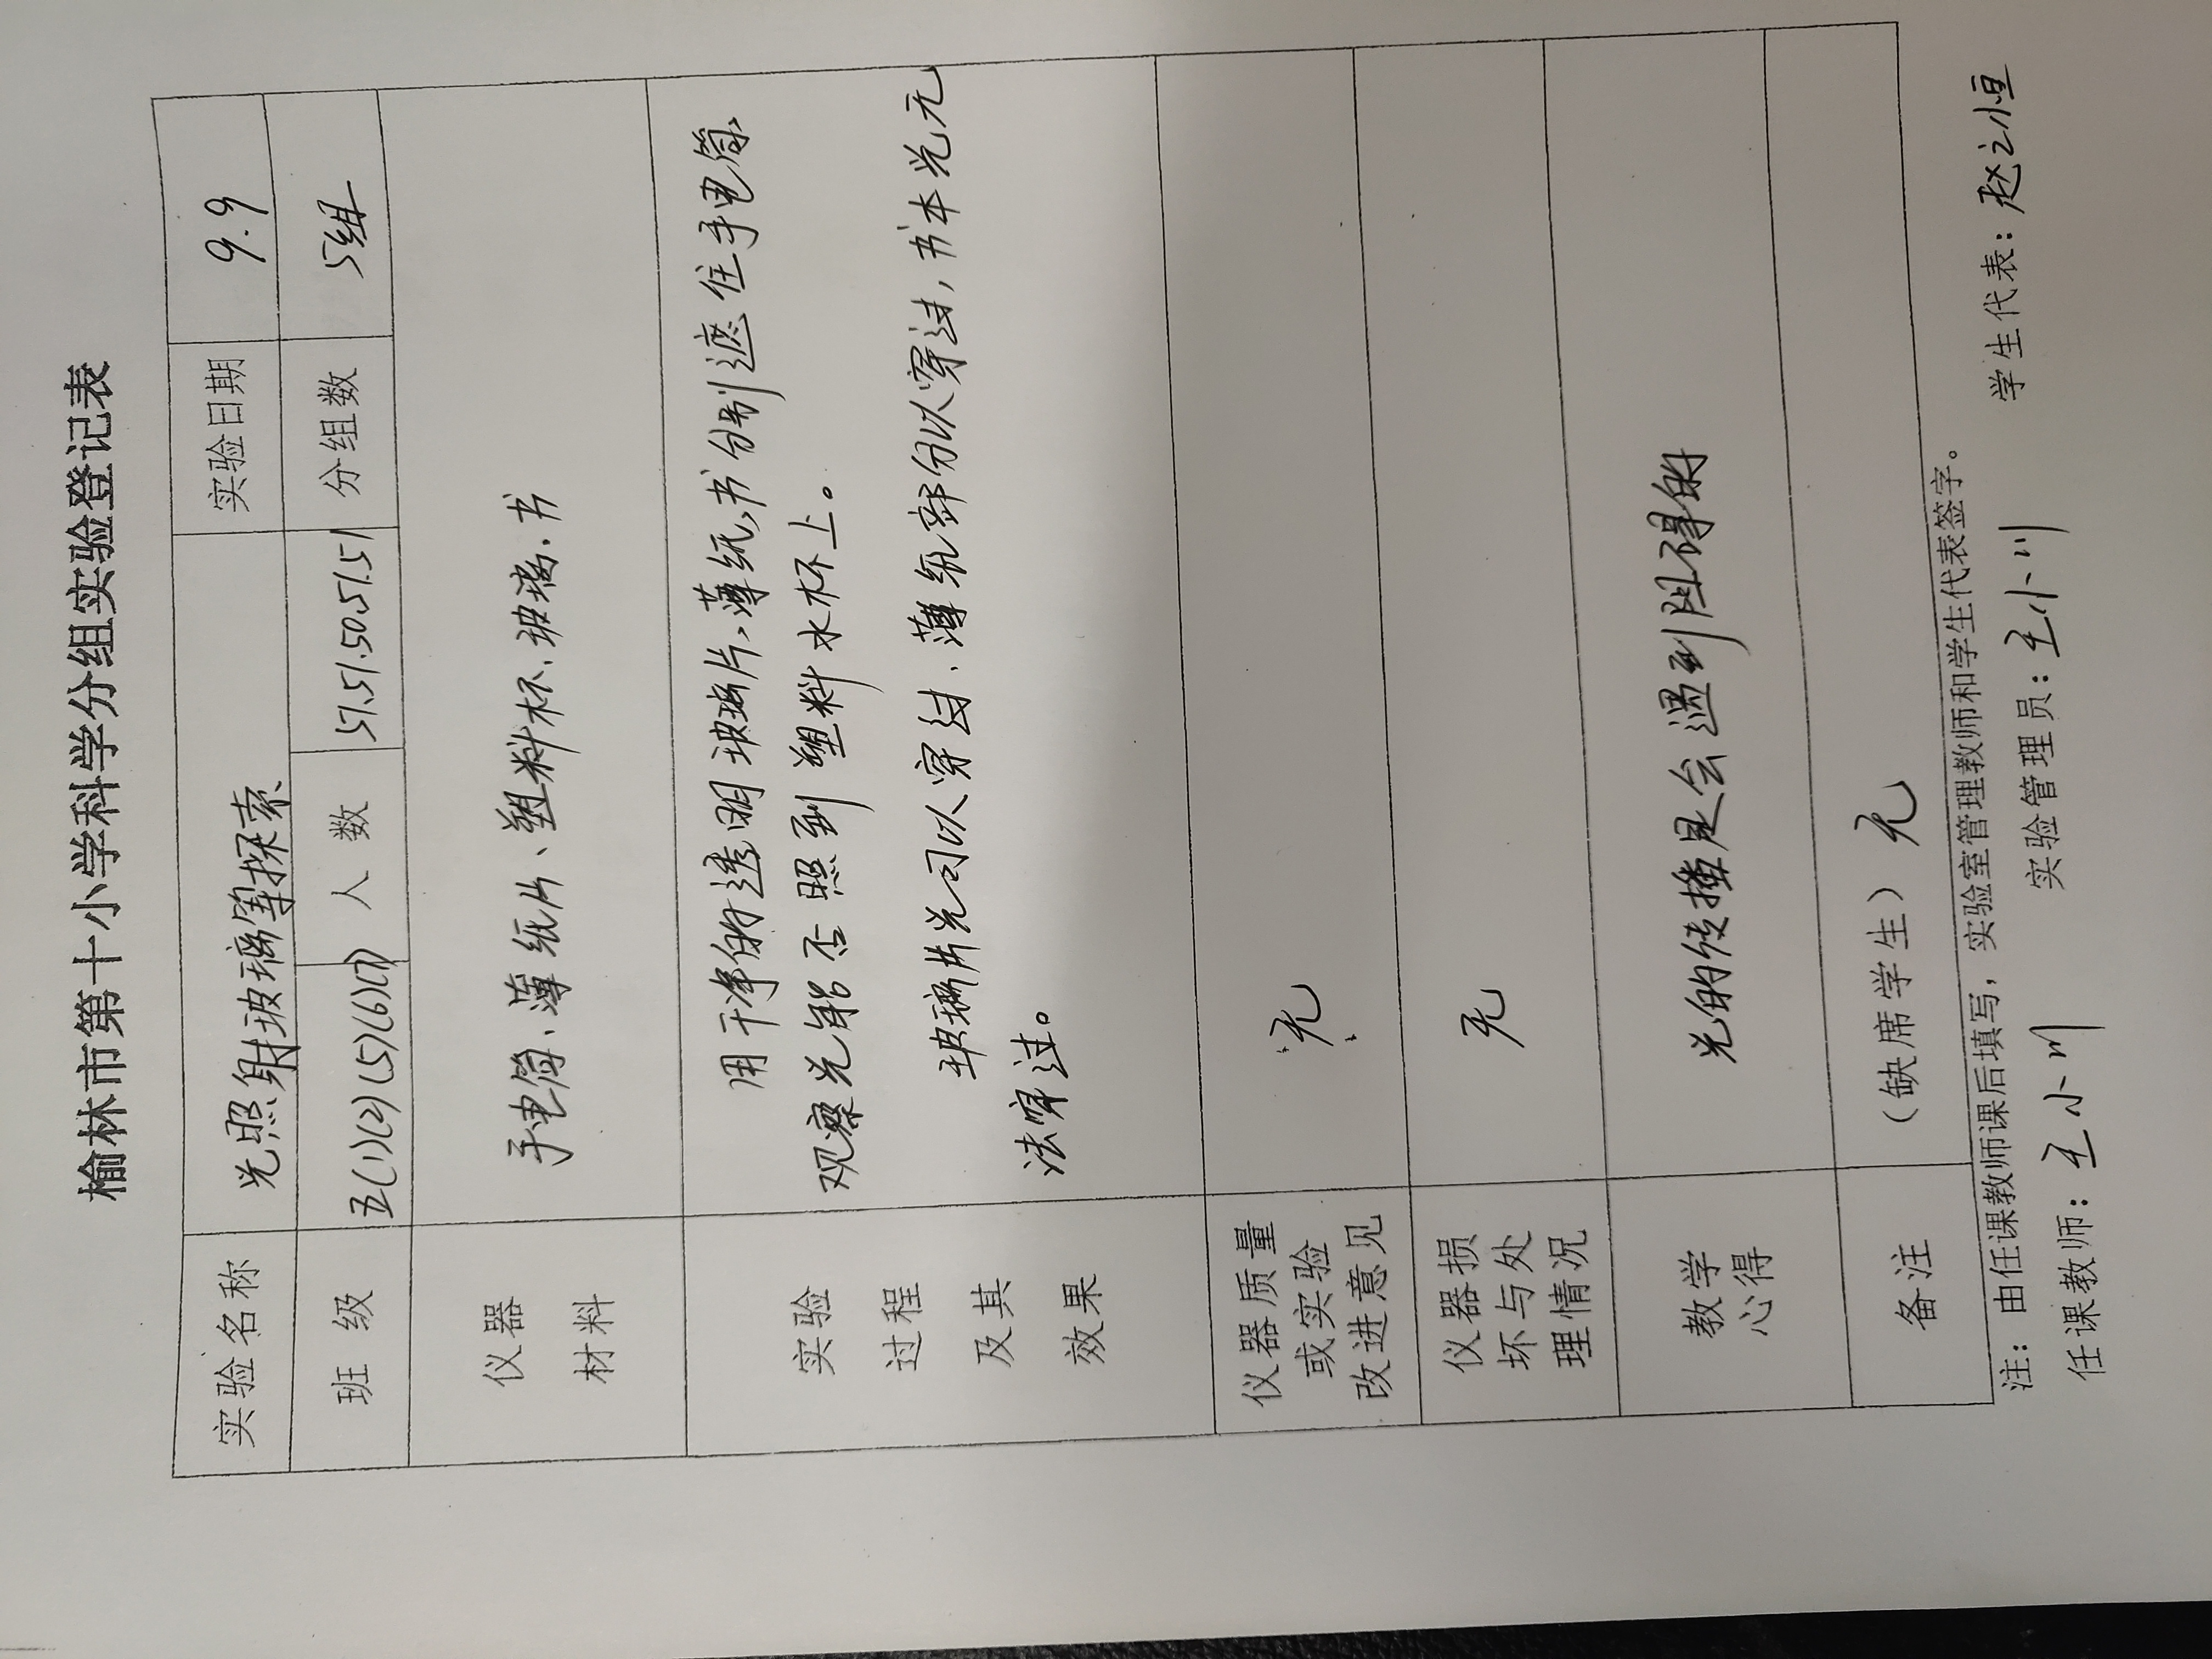 榆林市第十小学科学分组实验登记表
实验名称 光照射玻璃等探索 实验日期 9.9
班级 五(1)(2)(5)(6)(7) 人数 51.51.50.51.51 分组数 5组
仪器
材料
手电筒、薄纸片、塑料杯、玻璃.书
实验
过程
及其
效果
用干净的透明玻璃片、薄纸、书分别遮住手电筒
观察光能否照到塑料水杯上。
玻璃片光可以穿过、薄纸部分以穿过，书本光无
法穿过。
仪器质量
或实验
改进意见
无
仪器损
坏与处
理情况
无
教学
心得
光的传播是会遇到阻碍的
备注
（缺席学生）无
注：由任课教师课后填写，实验室管理教师和学生代表签字。
任课教师：王小川 实验管理员：王小川 学生代表：赵之恒